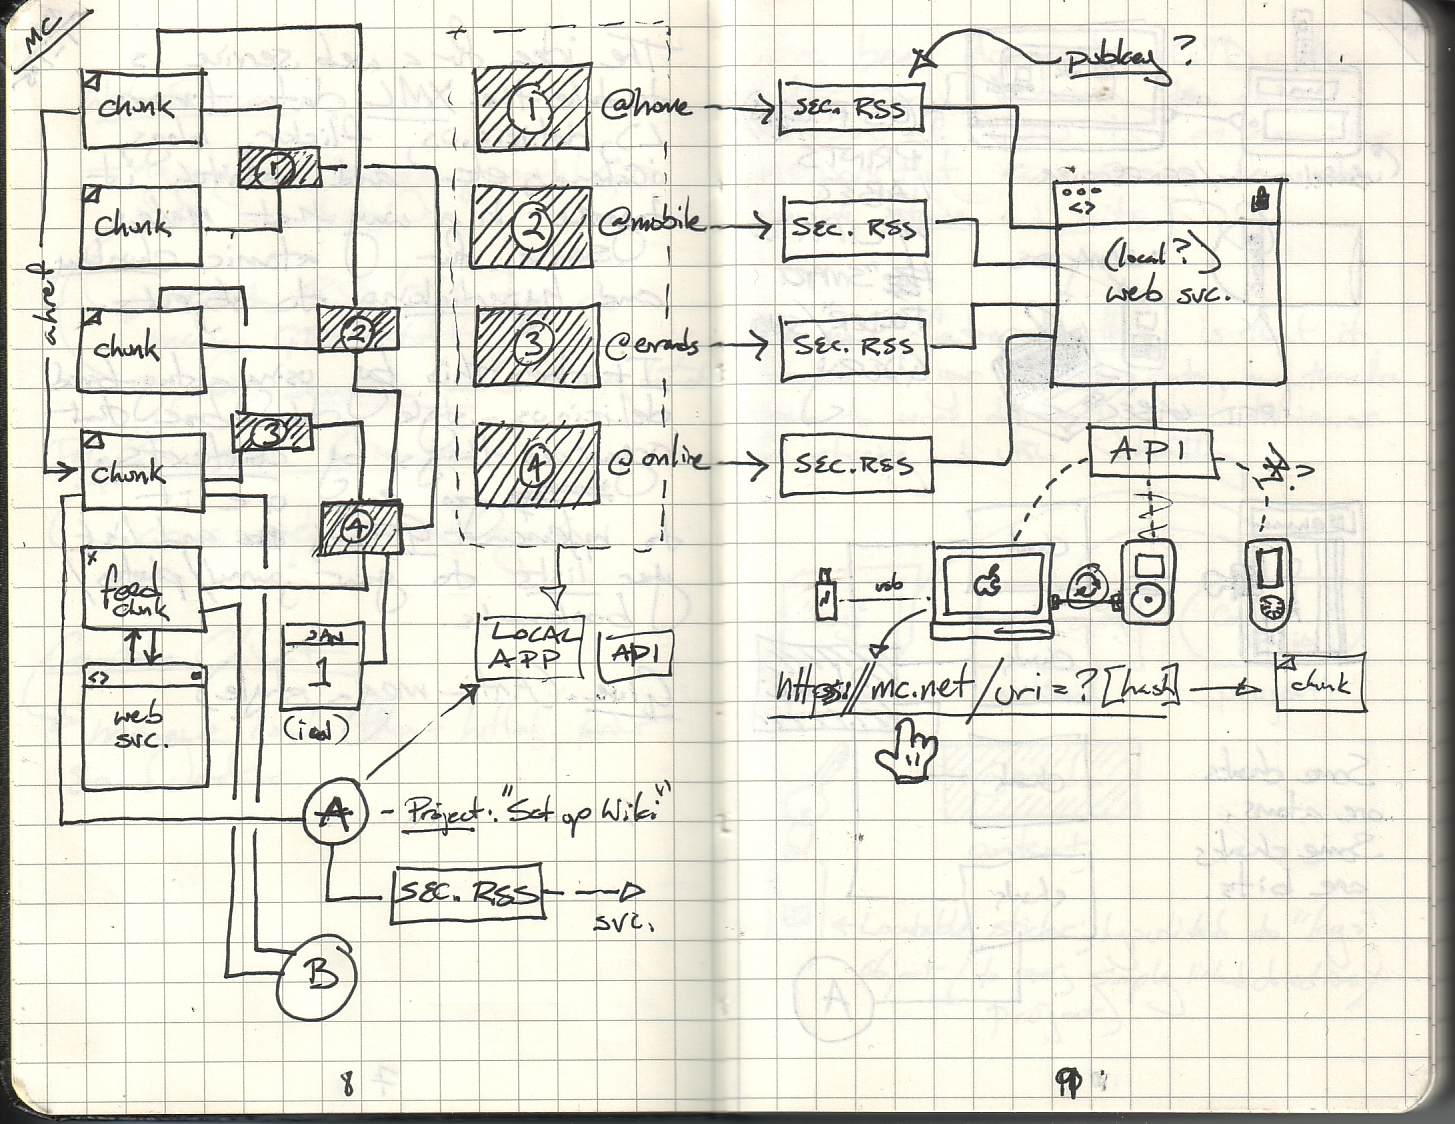 MC
chunk
1
chunk
ahref
chunk
2
chunk
3
4
feed
chunk
<>
web
svc.
JAN
1
(ical)
1 @home
2 @mobile
3 @errands
4 @online
LOCAL
APP
API
A - Project: "Set up Wiki"
SEC. RSS
svc.
B
8
pubkey?
SEC. RSS
SEC. RSS
SEC. RSS
SEC. RSS
<>
(local?)
web svc.
API
?
usb
https://mc.net/uri=?[hash]
chunk
9